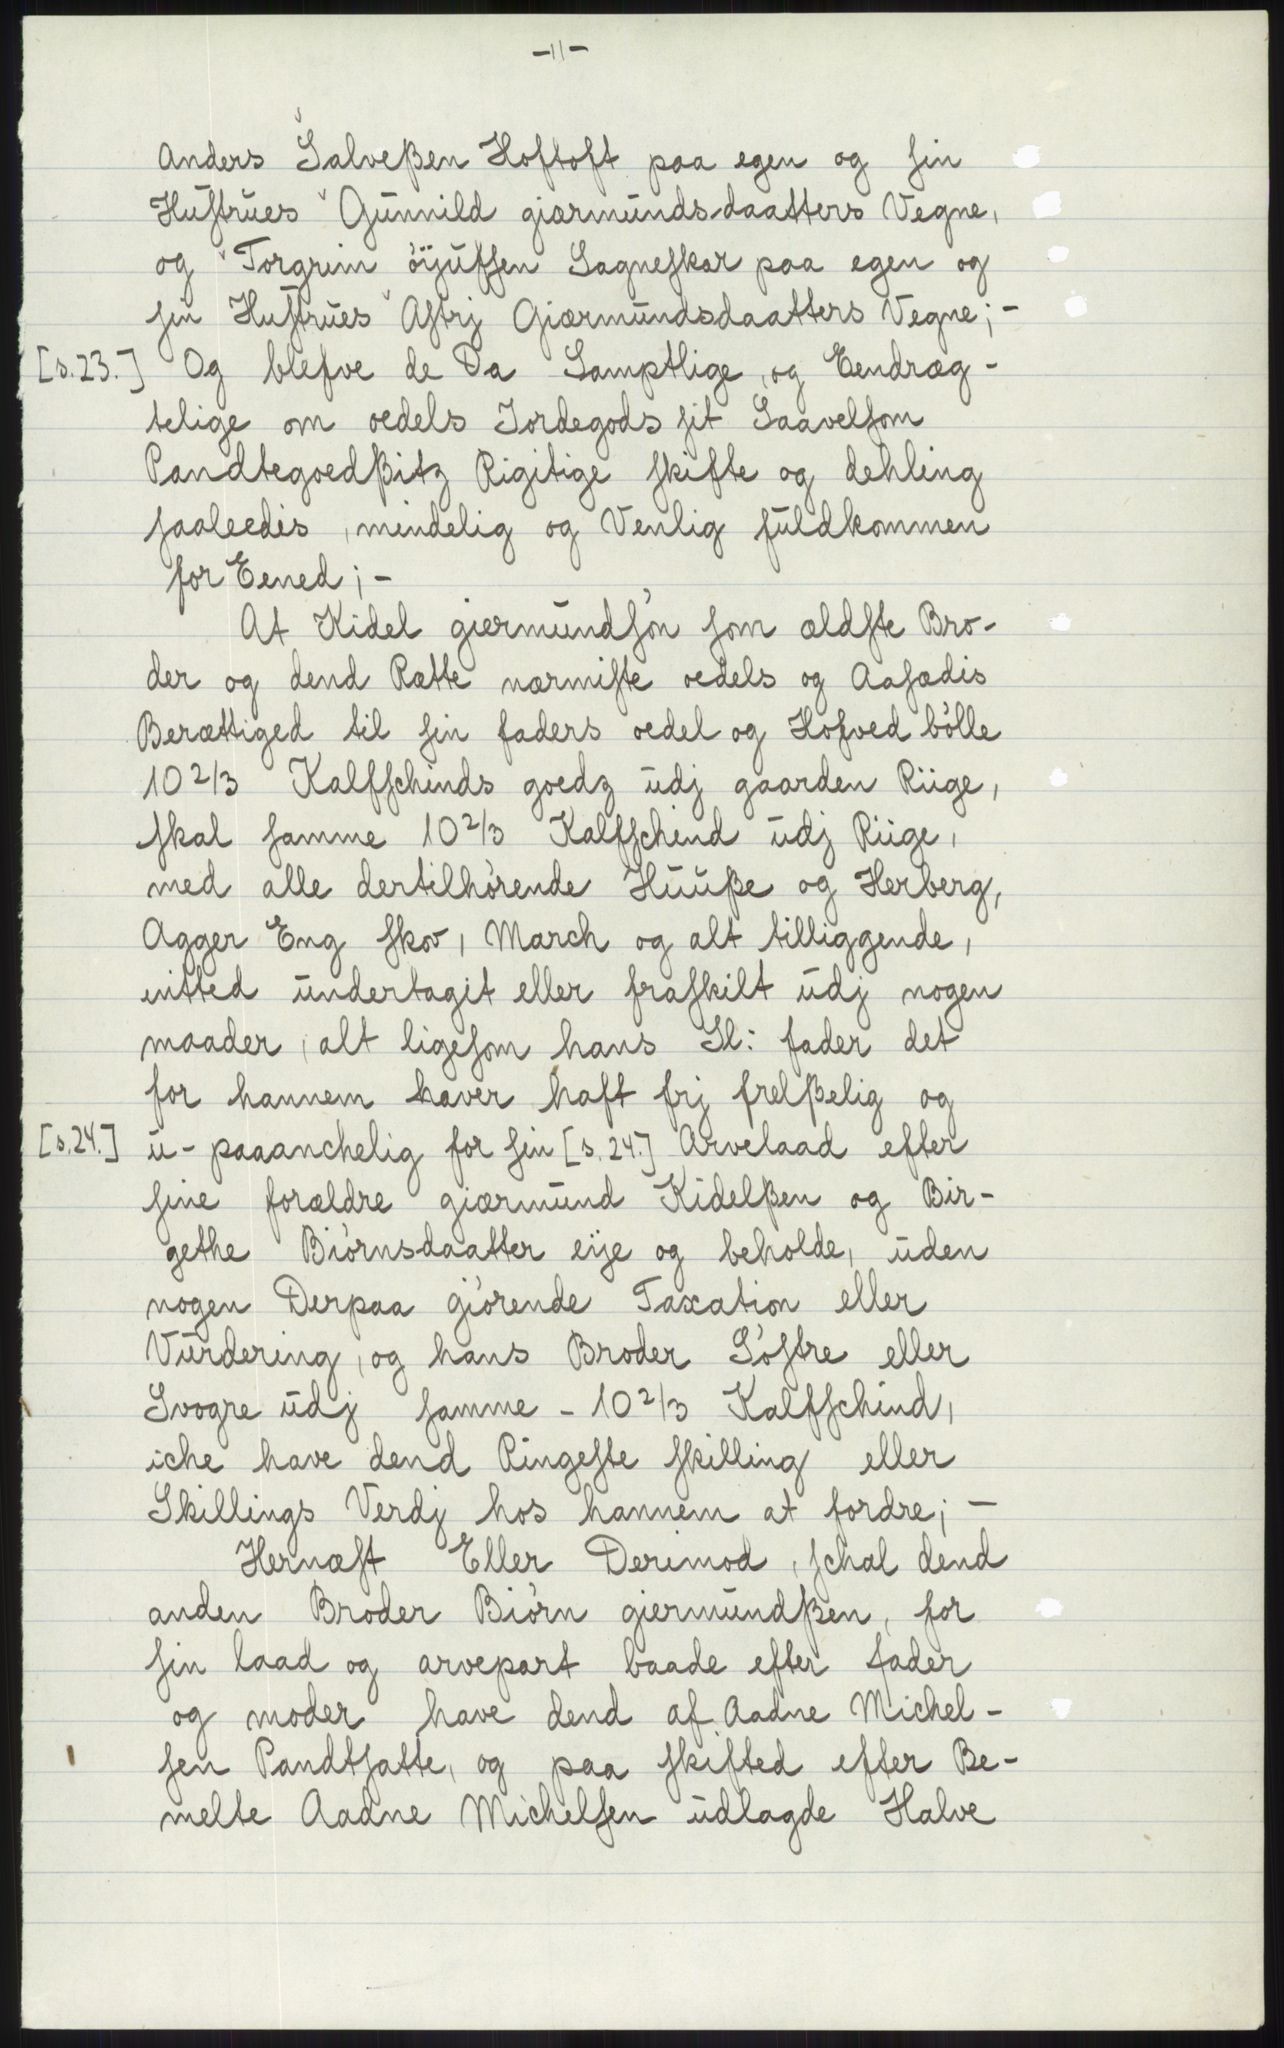 -11-
Anders Salveßen Hoftoft paa egen og sin
Hustrues Gunnild giærmunds-daatters Vegne,
og Torgrim öÿufsen Sagneskar paa egen og
sin Hustrues Astrj Giærmundsdaatters Vegne; -
[s. 23.] Og blefve de Da Samptlige, og Eendræg-
telige om oedels Jordegods sit Saavelsom
Pandtegoedßitz Rigitige skifte og dehling
saaleedis, mindelig og Venlig fuldkommen
for Eened; -
At Kidel giermundsøn som ældste Bro-
der og dend Rætte nærmiste oedels og Aasædis
Berættiged til sin faders oedel og Hofved bølle
10 2/3 Kalfschinds goedz udj gaarden Riige,
skal samme 10 2/3 Kalfschind udj Riige,
med alle dertilhørende Huuße og Herberg,
Agger Eng skov, March og alt tilliggende,
intted undertagit eller fraskilt udj nogen
maader, alt ligesom hans Sl: fader det
for hannem haver haft frj frelßelig og
[s. 24.] u-paaanchelig for sin [s. 24.] Arvelaad efter
sine forældre giærmund Kidelßen og Bir-
gethe Biørnsdaatter eije og beholde, uden
nogen Derpaa giørende Taxation eller
Vurdering, og hans Broder Søstre eller
Svogre udj samme - 10 2/3 Kalfschind,
iche have dend Ringeste skilling eller
Skillings Verdj hos hannem at fordre; -
Hernæst Eller Derimod, schal dend
anden Broder Biørn giermundßen, for
sin laad og arvepart baade efter fader
og moder have dend af Aadne Michel-
sen Pandtsatte, og paa skifted efter Be-
melte Aadne Michelsen udlagde Halve